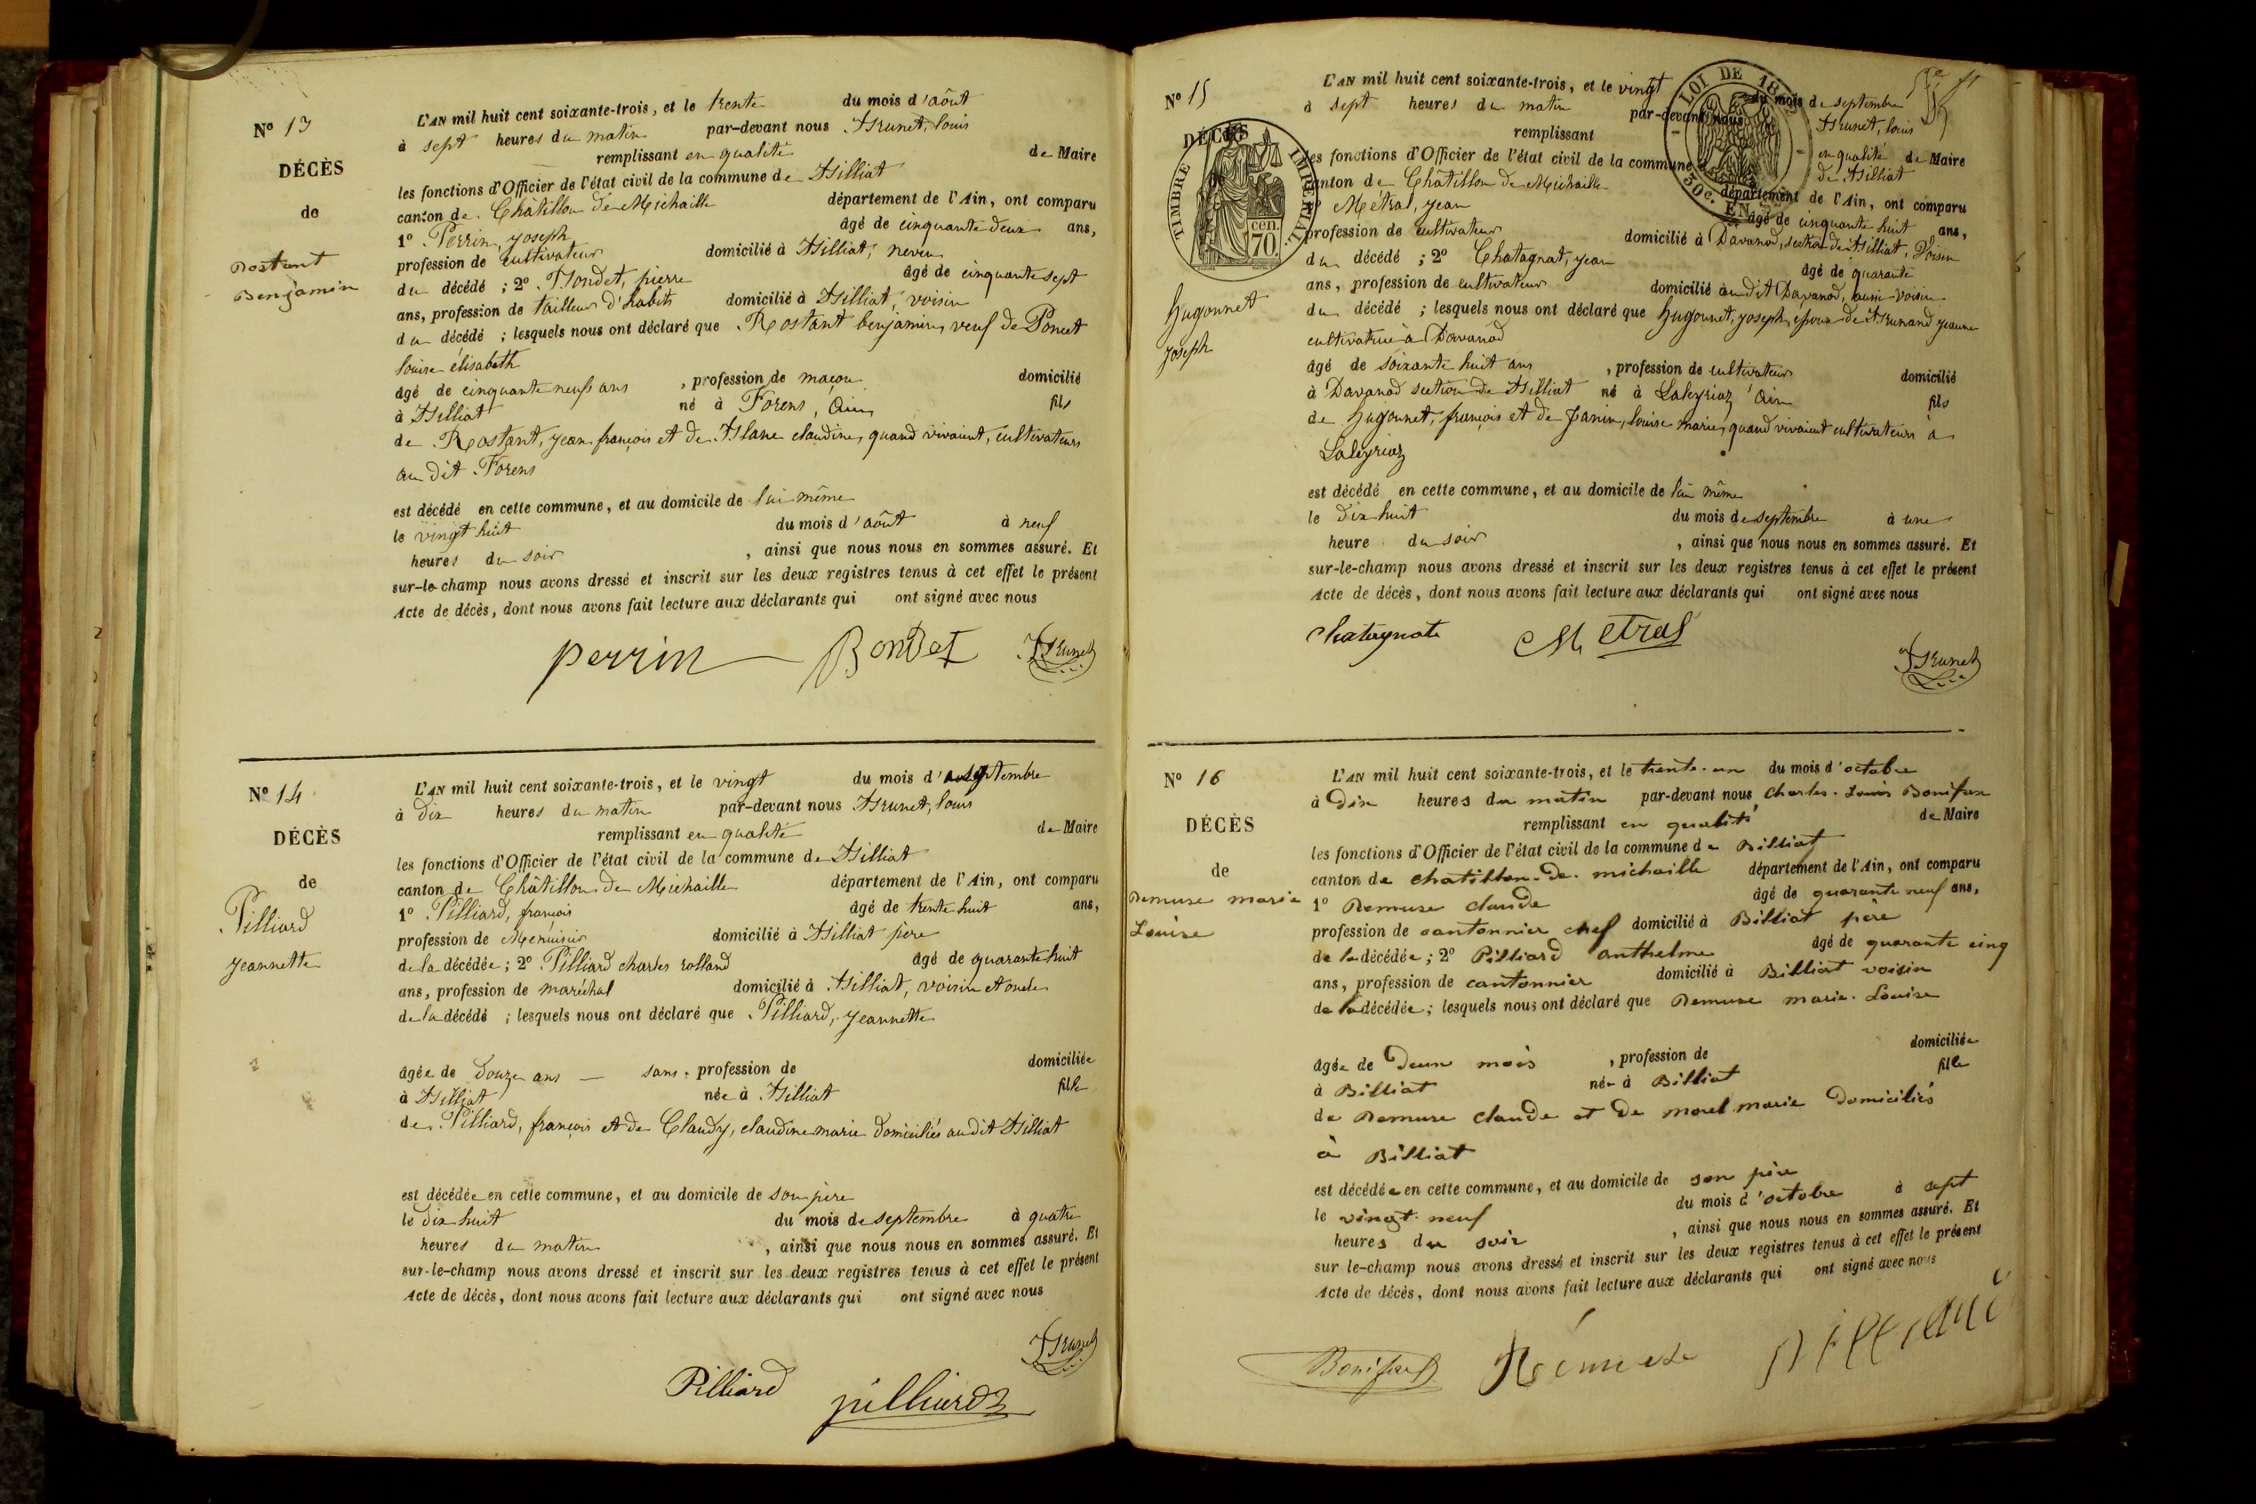 Nº 13
DÉCÈS
de
Rostant
Benjamin
L'AN mil huit cent soixante-trois, et le trente du mois d'aôut
à sept heures du matin par-devant nous Brunet, louis
remplissant en qualité de Maire
les fonctions d'Officier de l'état civil de la commune de Billiat
canton de Châtillon de Michaille département de l'Ain, ont comparu
1º Perrin, joseph âgé de cinquante deux ans,
profession de cultivateur domicilié à Billiat, neveu
du décédé ; 2º Bondet, pierre âgé de cinquante sept
ans, profession de tailleur d'habits domicilié à Billiat, voisin
du décédé ; lesquels nous ont déclaré que Rostant benjamin, veuf de Poncet
louise élisabeth
âgé de cinquante neuf ans , profession de maçon domicilié
à Billiat né à Forens, Ain fils
de Rostant, jean françois et de Blanc claudine, quand vivaient, cultivateurs
au dit Forens
est décédé en cette commune, et au domicile de lui même
le vingt huit du mois d'aôut à neuf
heures du soir , ainsi que nous nous en sommes assuré. Et
sur-le-champ nous avons dressé et inscrit sur les deux registres tenus à cet effet le présent
Acte de décès, dont nous avons fait lecture aux déclarants qui ont signé avec nous
perrin Bondet Brunet
Nº 14
DÉCÈS
de
Pilliard
jeannette
L'AN mil huit cent soixante-trois, et le vingt du mois d' septembre
à dix heures du matin par-devant nous Brunet, louis
remplissant en qualité de Maire
les fonctions d'Officier de l'état civil de la commune de Billiat
canton de Châtillon de Michaille département de l'Ain, ont comparu
1º Pilliard, françois âgé de trente huit ans,
profession de Menuisier domicilié à Billiat père
de la décédée ; 2º Pilliard charles rolland âgé de quarante huit
ans, profession de maréchal domicilié à Billiat, voisin et oncle
de la décédé ; lesquels nous ont déclaré que Pilliard, jeannette
âgée de douze ans — sans profession de domiciliée
à Billiat née à Billiat fille
de Pilliard, françois et de Claudy, claudine marie domiciliés au dit Billiat
est décédée en cette commune, et au domicile de son père
le dix huit du mois de septembre à quatre
heures du matin , ainsi que nous nous en sommes assuré. Et
sur-le-champ nous avons dressé et inscrit sur les deux registres tenus à cet effet le présent
Acte de décès, dont nous avons fait lecture aux déclarants qui ont signé avec nous
Brunet
Pilliard pilliard
Nº 15
DÉCÈS
TIMBRE IMPÉRIAL.
cen. 70.
LOI DE 18
50c. EN
Hugonnet
joseph
L'AN mil huit cent soixante-trois, et le vingt du mois de septembre
à sept heures du matin par-devant nous Brunet, louis
remplissant en qualité de Maire
les fonctions d'Officier de l'état civil de la commune de Billiat
canton de Châtillon de Michaille département de l'Ain, ont comparu
Métral, jean âgé de cinquante huit ans,
profession de cultivateur domicilié à Davanod, section de Billiat, Voisin
du décédé ; 2º Chatagnat, jean âgé de quarante
ans, profession de cultivateur domicilié au dit Davanod, aussi voisin
du décédé ; lesquels nous ont déclaré que Hugonnet, joseph, époux de Brunand jeanne
cultivatrice à Davanod
âgé de soixante huit ans , profession de cultivateur domicilié
à Davanod section de Billiat né à Laleyriaz Ain fils
de Hugonnet, françois et de Janin, louise marie, quand vivaient cultivateurs à
Laleyriaz
est décédé en cette commune, et au domicile de lui même
le dix huit du mois de septembre à une
heure du soir , ainsi que nous nous en sommes assuré. Et
sur-le-champ nous avons dressé et inscrit sur les deux registres tenus à cet effet le présent
Acte de décès, dont nous avons fait lecture aux déclarants qui ont signé avec nous
Chatagnat Metral
Brunet
Nº 16
DÉCÈS
de
Remuse marie
Louise
L'AN mil huit cent soixante-trois, et le trente-un du mois d'octobre
à dix heures du matin par-devant nous Charles-Louis Bonifax
remplissant en qualité de Maire
les fonctions d'Officier de l'état civil de la commune de Billiat
canton de chatillon-de-michaille département de l'Ain, ont comparu
1º Remuse claude âgé de quarante neuf ans,
profession de cantonnier chef domicilié à Billiat père
de la décédée ; 2º Pilliard anthelme âgé de quarante cinq
ans, profession de cantonnier domicilié à Billiat voisin
de la décédée ; lesquels nous ont déclaré que Remuse marie-Louise
âgée de Deux mois , profession de domiciliée
à Billiat née à Billiat fille
de Remuse claude et de morel marie Domiciliés
à Billiat
est décédée en cette commune, et au domicile de son père
le vingt-neuf du mois d'octobre à sept
heures du soir , ainsi que nous nous en sommes assuré. Et
sur le-champ nous avons dressé et inscrit sur les deux registres tenus à cet effet le présent
Acte de décès, dont nous avons fait lecture aux déclarants qui ont signé avec nous
Bonifax Rémuse pilliard